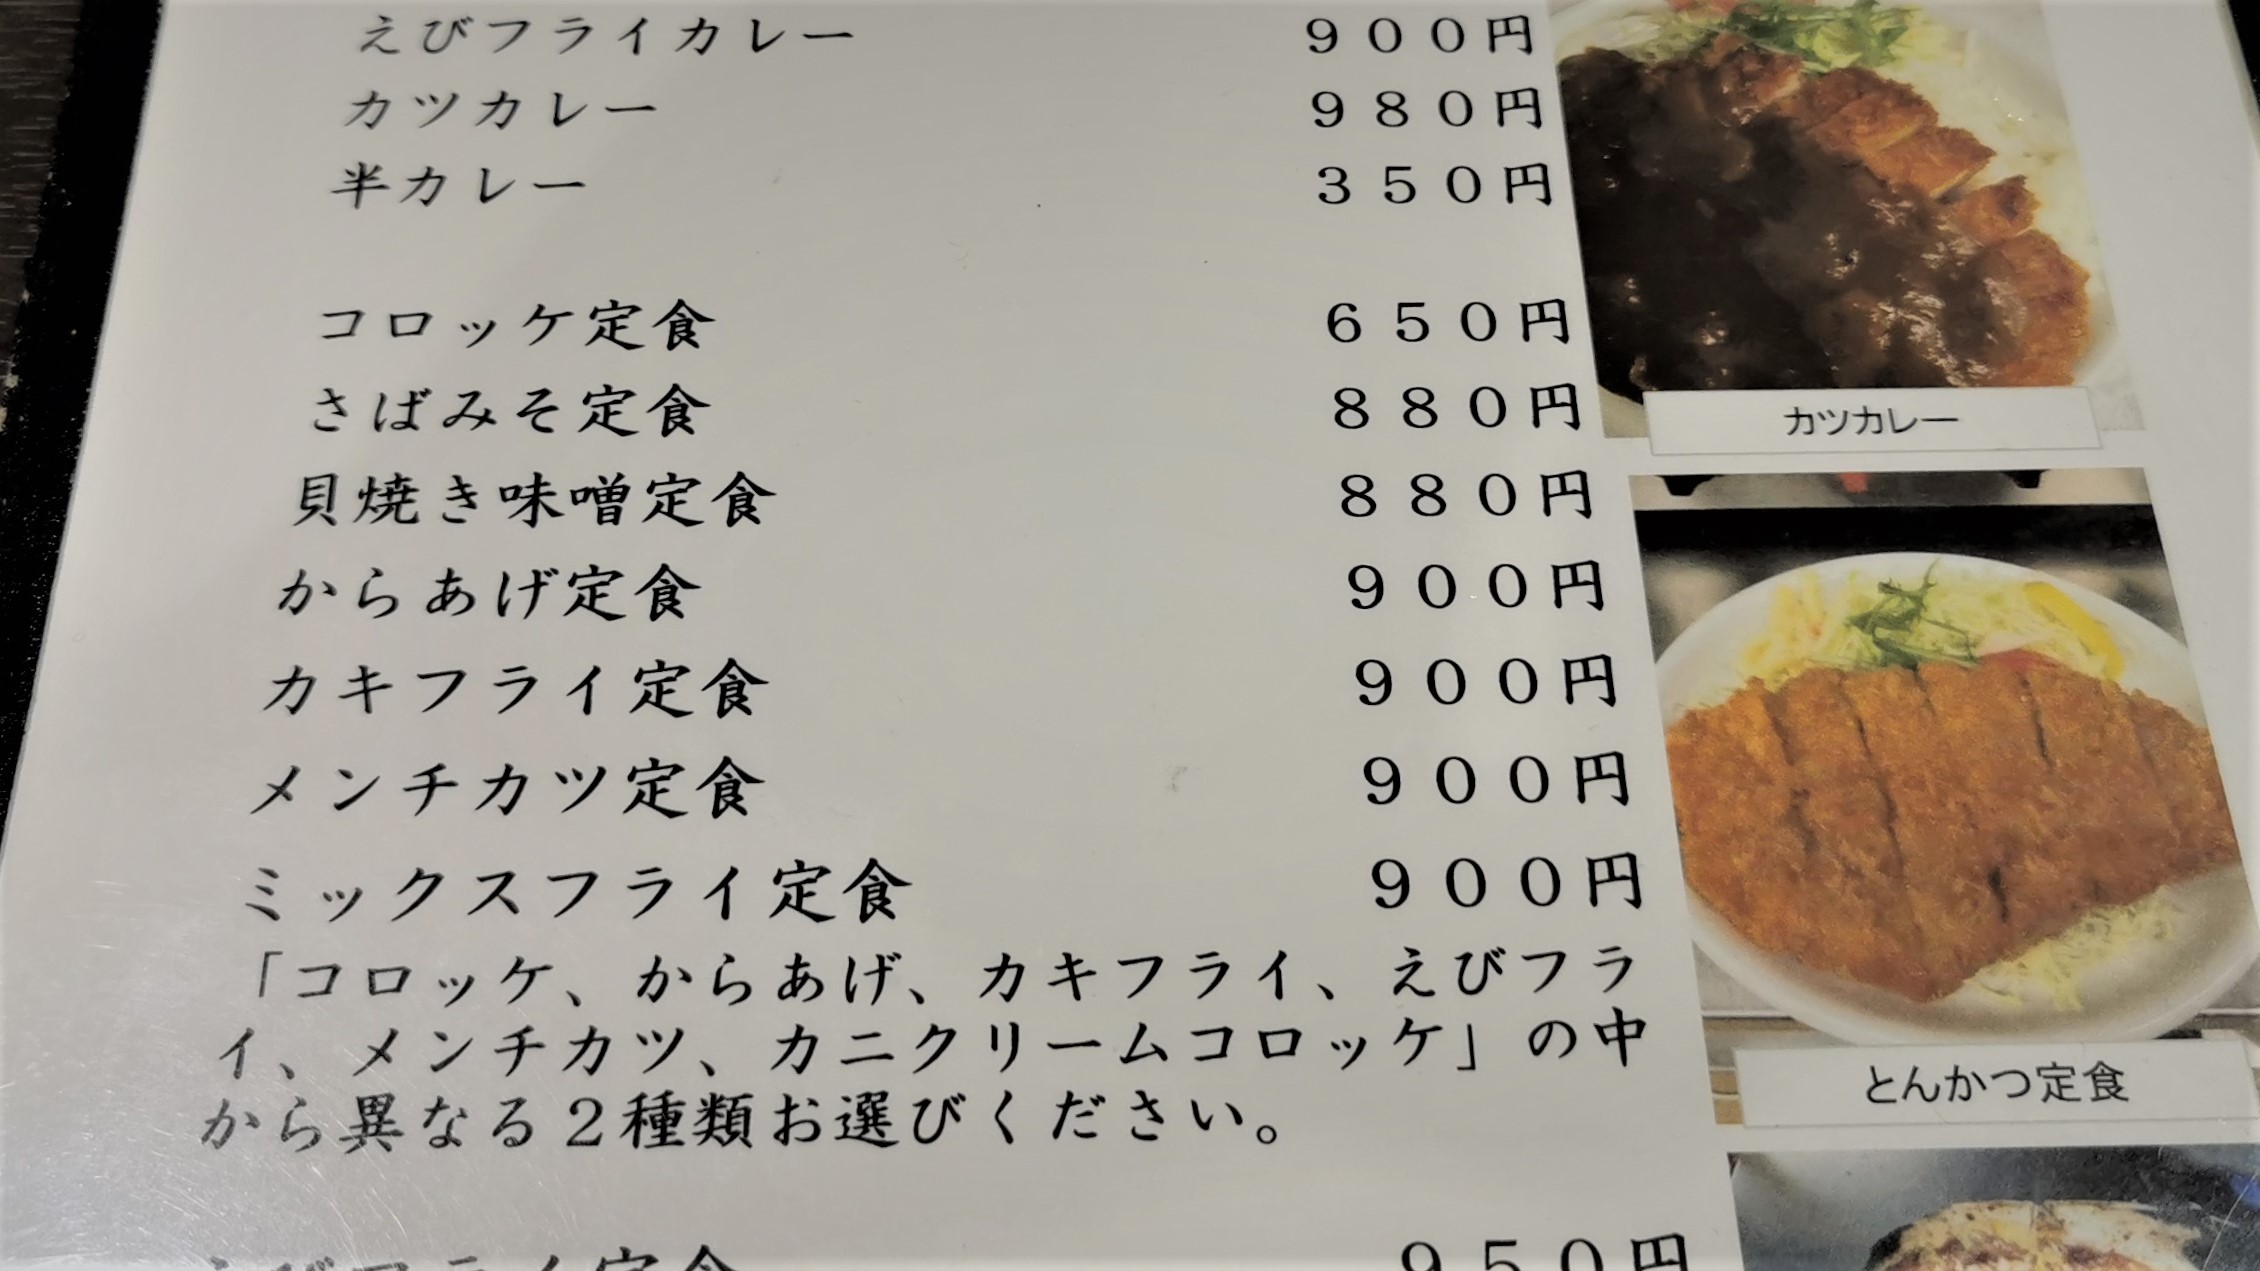 えびフライカレー ９００円
カツカレー ９８０円
半カレー ３５０円
コロッケ定食 ６５０円
さばみそ定食 ８８０円
貝焼き味噌定食 ８８０円
からあげ定食 ９００円
カキフライ定食 ９００円
メンチカツ定食 ９００円
ミックスフライ定食 ９００円
「コロッケ、からあげ、カキフライ、えびフラ
イ、メンチカツ、カニクリームコロッケ」の中
から異なる２種類お選びください。
えびフライ定食 ９５０円
カツカレー
とんかつ定食